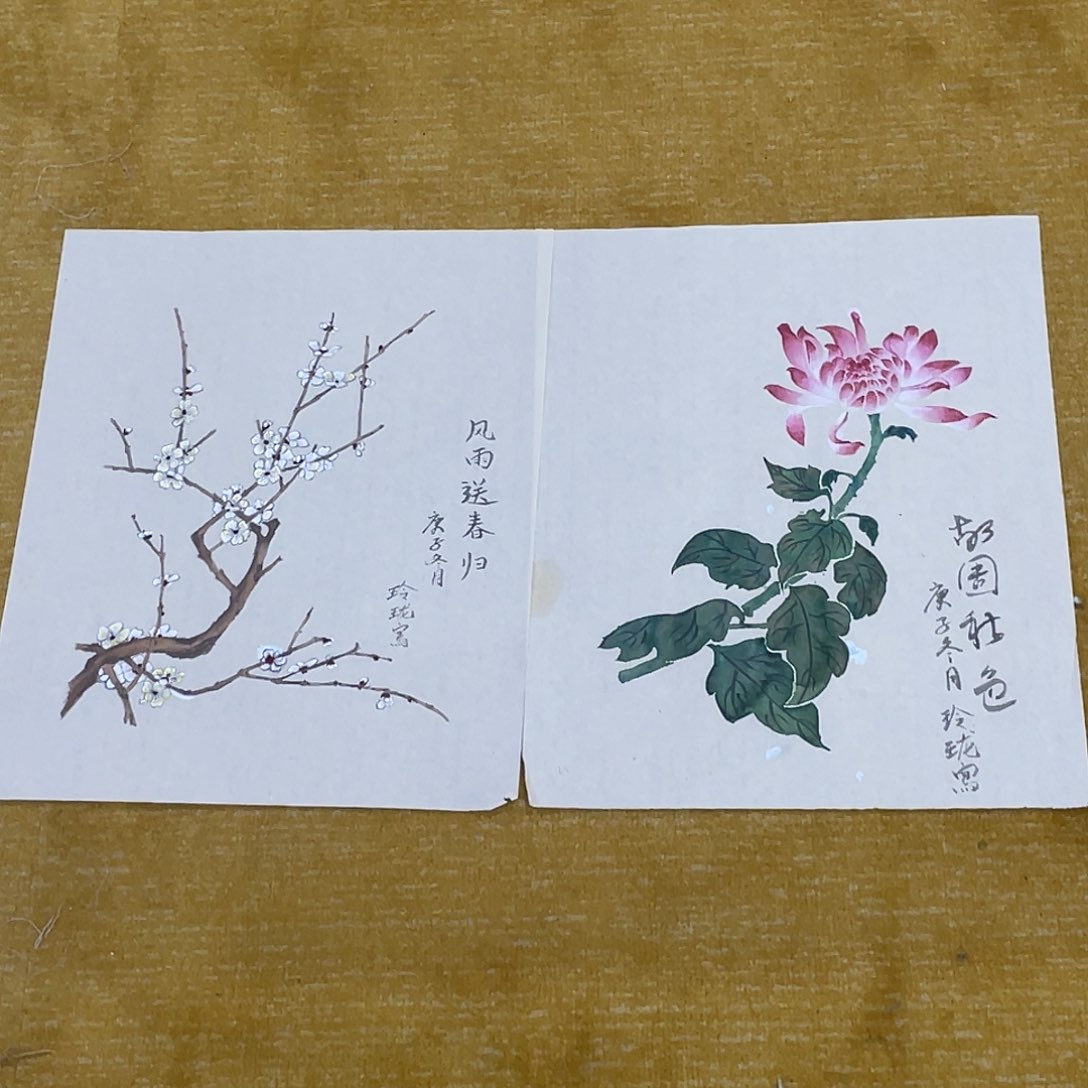 风雨送春归
庚子冬月
玲珑写
故园秋色
庚子冬月
玲珑写